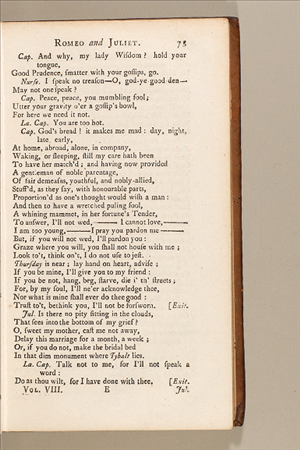 ROMEO and JULIET. 75
Cap. And why, my lady Wiſdom? hold your
tongue,
Good Prudence, ſmatter with your goſſips, go.
Nurſe. I ſpeak no treaſon—O, god-ye-good den—
May not one ſpeak?
Cap. Peace, peace, you mumbling fool;
Utter your gravity o'er a goſſip's bowl,
For here we need it not.
La. Cap. You are too hot.
Cap. God's bread! it makes me mad: day, night,
late, early,
At home, abroad, alone, in company,
Waking, or ſleeping, ſtill my care hath been
To have her match'd; and having now provided
A gentleman of noble parentage,
Of fair demeaſns, youthful, and nobly-allied,
Stuff'd, as they ſay, with honourable parts,
Proportion'd as one's thought would wiſh a man:
And then to have a wretched puling fool,
A whining mammet, in her fortune's Tender,
To anſwer, I'll not wed, —— I cannot love, ——
I am too young, —— I pray you pardon me ——
But, if you will not wed, I'll pardon you:
Graze where you will, you ſhall not houſe with me;
Look to't, think on't, I do not uſe to jeſt.
Thurſday is near; lay hand on heart, adviſe;
If you be mine, I'll give you to my friend:
If you be not, hang, beg, ſtarve, die i' th' ſtreets;
For, by my ſoul, I'll ne'er acknowledge thee,
Nor what is mine ſhall ever do thee good:
Truſt to't, bethink you, I'll not be forſworn. [Exit.
Jul. Is there no pity ſitting in the clouds,
That ſees into the bottom of my grief?
O, ſweet my mother, caſt me not away,
Delay this marriage for a month, a week;
Or, if you do not, make the bridal bed
In that dim monument where Tybalt lies.
La. Cap. Talk not to me, for I'll not ſpeak a
word:
Do as thou wilt, for I have done with thee. [Exit.
VOL. VIII. E Jul.